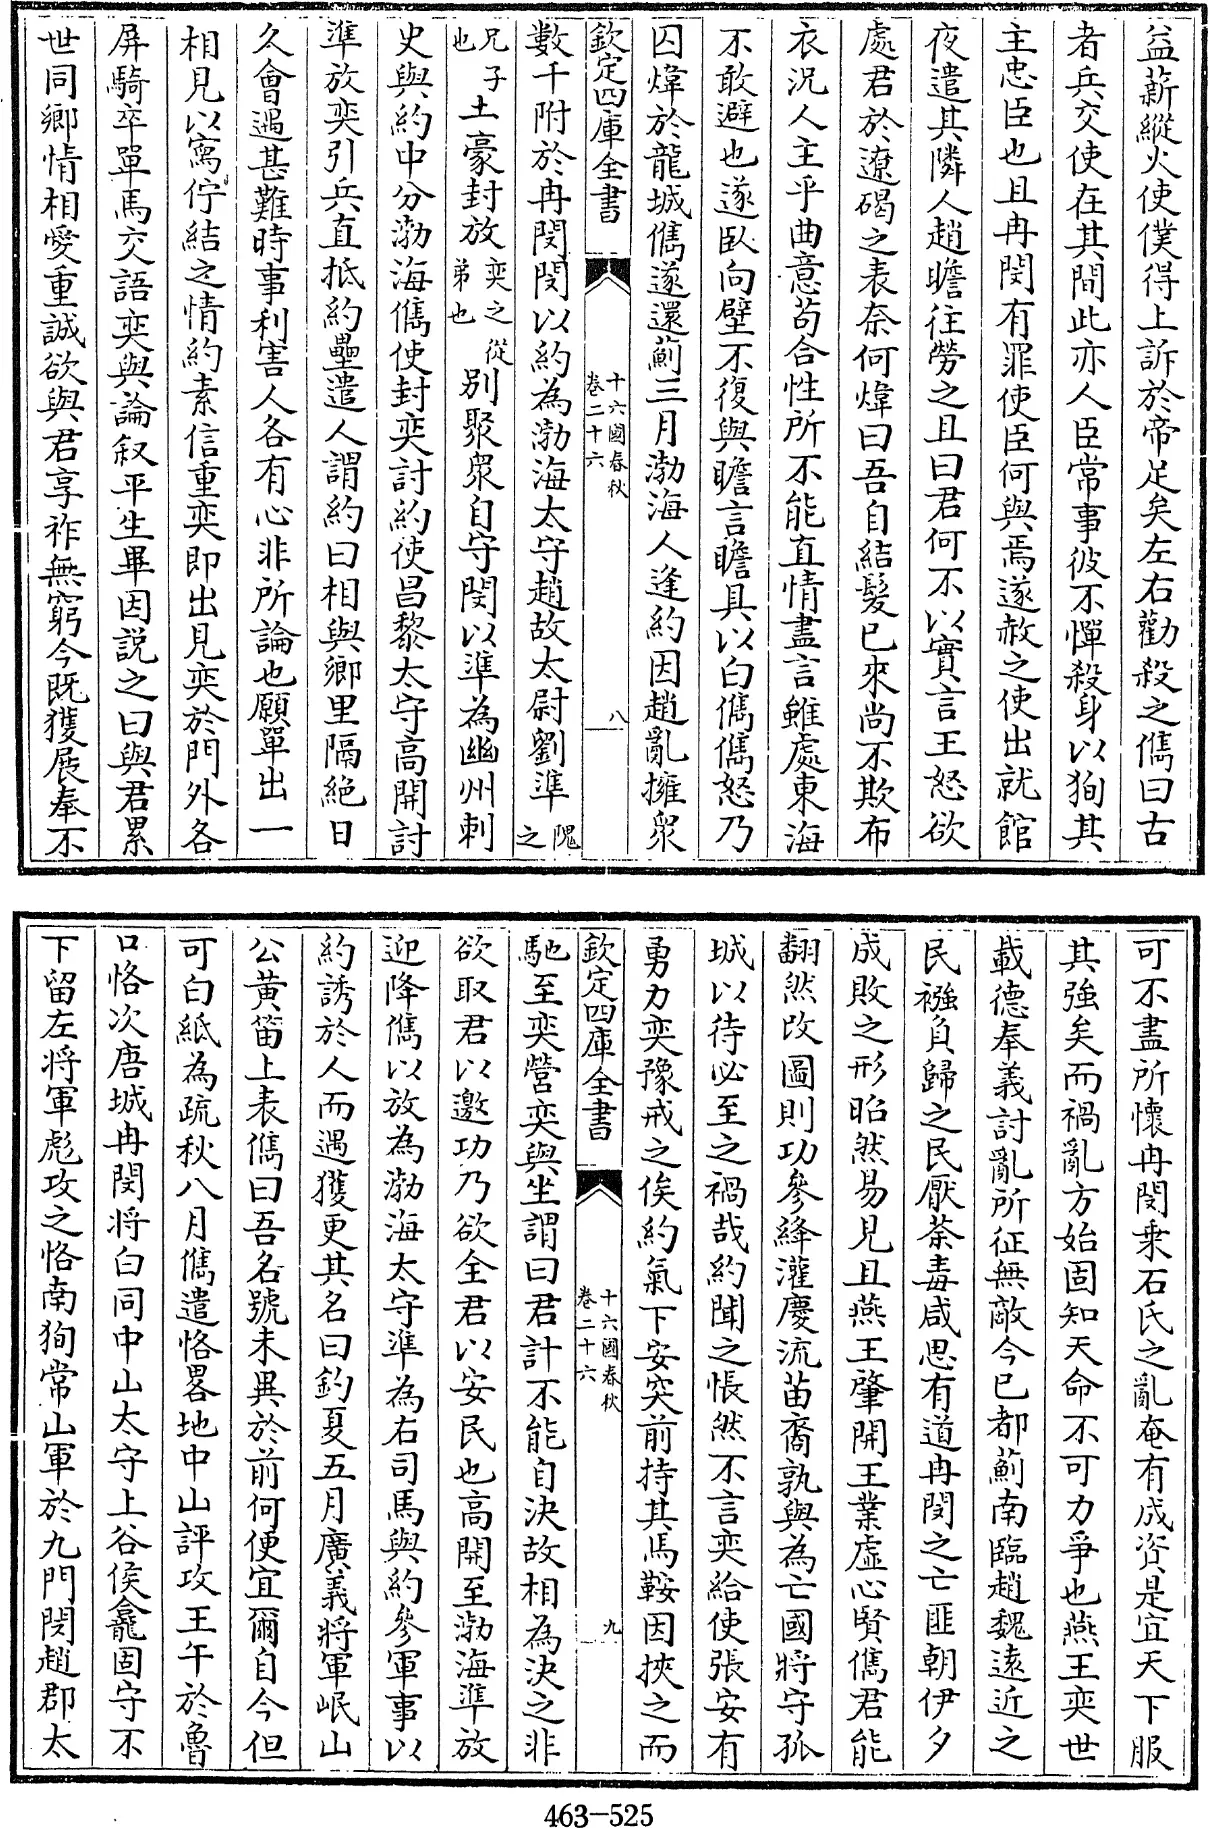 益薪縱火使僕得上訴於帝足矣左右勸殺之儁曰古
者兵交使在其間此亦人臣常事彼不憚殺身以狥其
主忠臣也且冉閔有罪使臣何與焉遂赦之使出就館
夜遣其隣人趙瞻往勞之且曰君何不以實言王怒欲
處君於遼碣之表奈何煒曰吾自結髮已來尚不欺布
衣況人主乎曲意苟合性所不能直情盡言雖處東海
不敢避也遂臥向壁不復與瞻言瞻具以白儁儁怒乃
囚煒於龍城儁遂還薊三月渤海人逢約因趙亂擁衆
欽定四庫全書
十六國春秋
卷二十六
八
數千附於冉閔閔以約為渤海太守趙故太尉劉準隗之
兄子也土豪封放奕之從弟也別聚衆自守閔以準為幽州刺
史與約中分渤海儁使封奕討約使昌黎太守高開討
準放奕引兵直抵約壘遣人謂約曰相與鄉里隔絶日
久會遇甚難時事利害人各有心非所論也願單出一
相見以寫佇結之情約素信重奕即出見奕於門外各
屏騎卒單馬交語奕與論叙平生畢因説之曰與君累
世同鄉情相愛重誠欲與君享祚無窮今既獲展奉不
可不盡所懷冉閔乗石氏之亂奄有成資是宜天下服
其強矣而禍亂方始固知天命不可力爭也燕王奕世
載德奉義討亂所征無敵今已都薊南臨趙魏遠近之
民襁負歸之民厭荼毒咸思有道冉閔之亡匪朝伊夕
成敗之形昭然易見且燕王肇開王業虛心賢儁君能
翻然改圖則功參絳灌慶流苗裔孰與為亡國將守孤
城以待必至之禍哉約聞之悵然不言奕給使張安有
勇力奕豫戒之俟約氣下安突前持其馬鞍因挾之而
欽定四庫全書
十六國春秋
卷二十六
九
馳至奕營奕與坐謂曰君計不能自決故相為決之非
欲取君以邀功乃欲全君以安民也高開至渤海準放
迎降儁以放為渤海太守準為右司馬與約參軍事以
約誘於人而遇獲更其名曰釣夏五月廣義將軍岷山
公黄笛上表儁曰吾名號未異於前何便宜爾自今但
可白紙為疏秋八月儁遣恪畧地中山評攻王午於魯
口恪次唐城冉閔將白同中山太守上谷侯龕固守不
下留左將軍彪攻之恪南狥常山軍於九門閔趙郡太
463-525